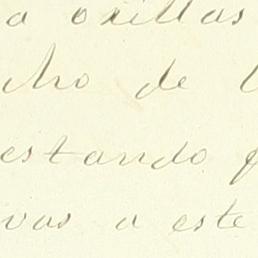 a orillas
cho de l
estando
vas a este